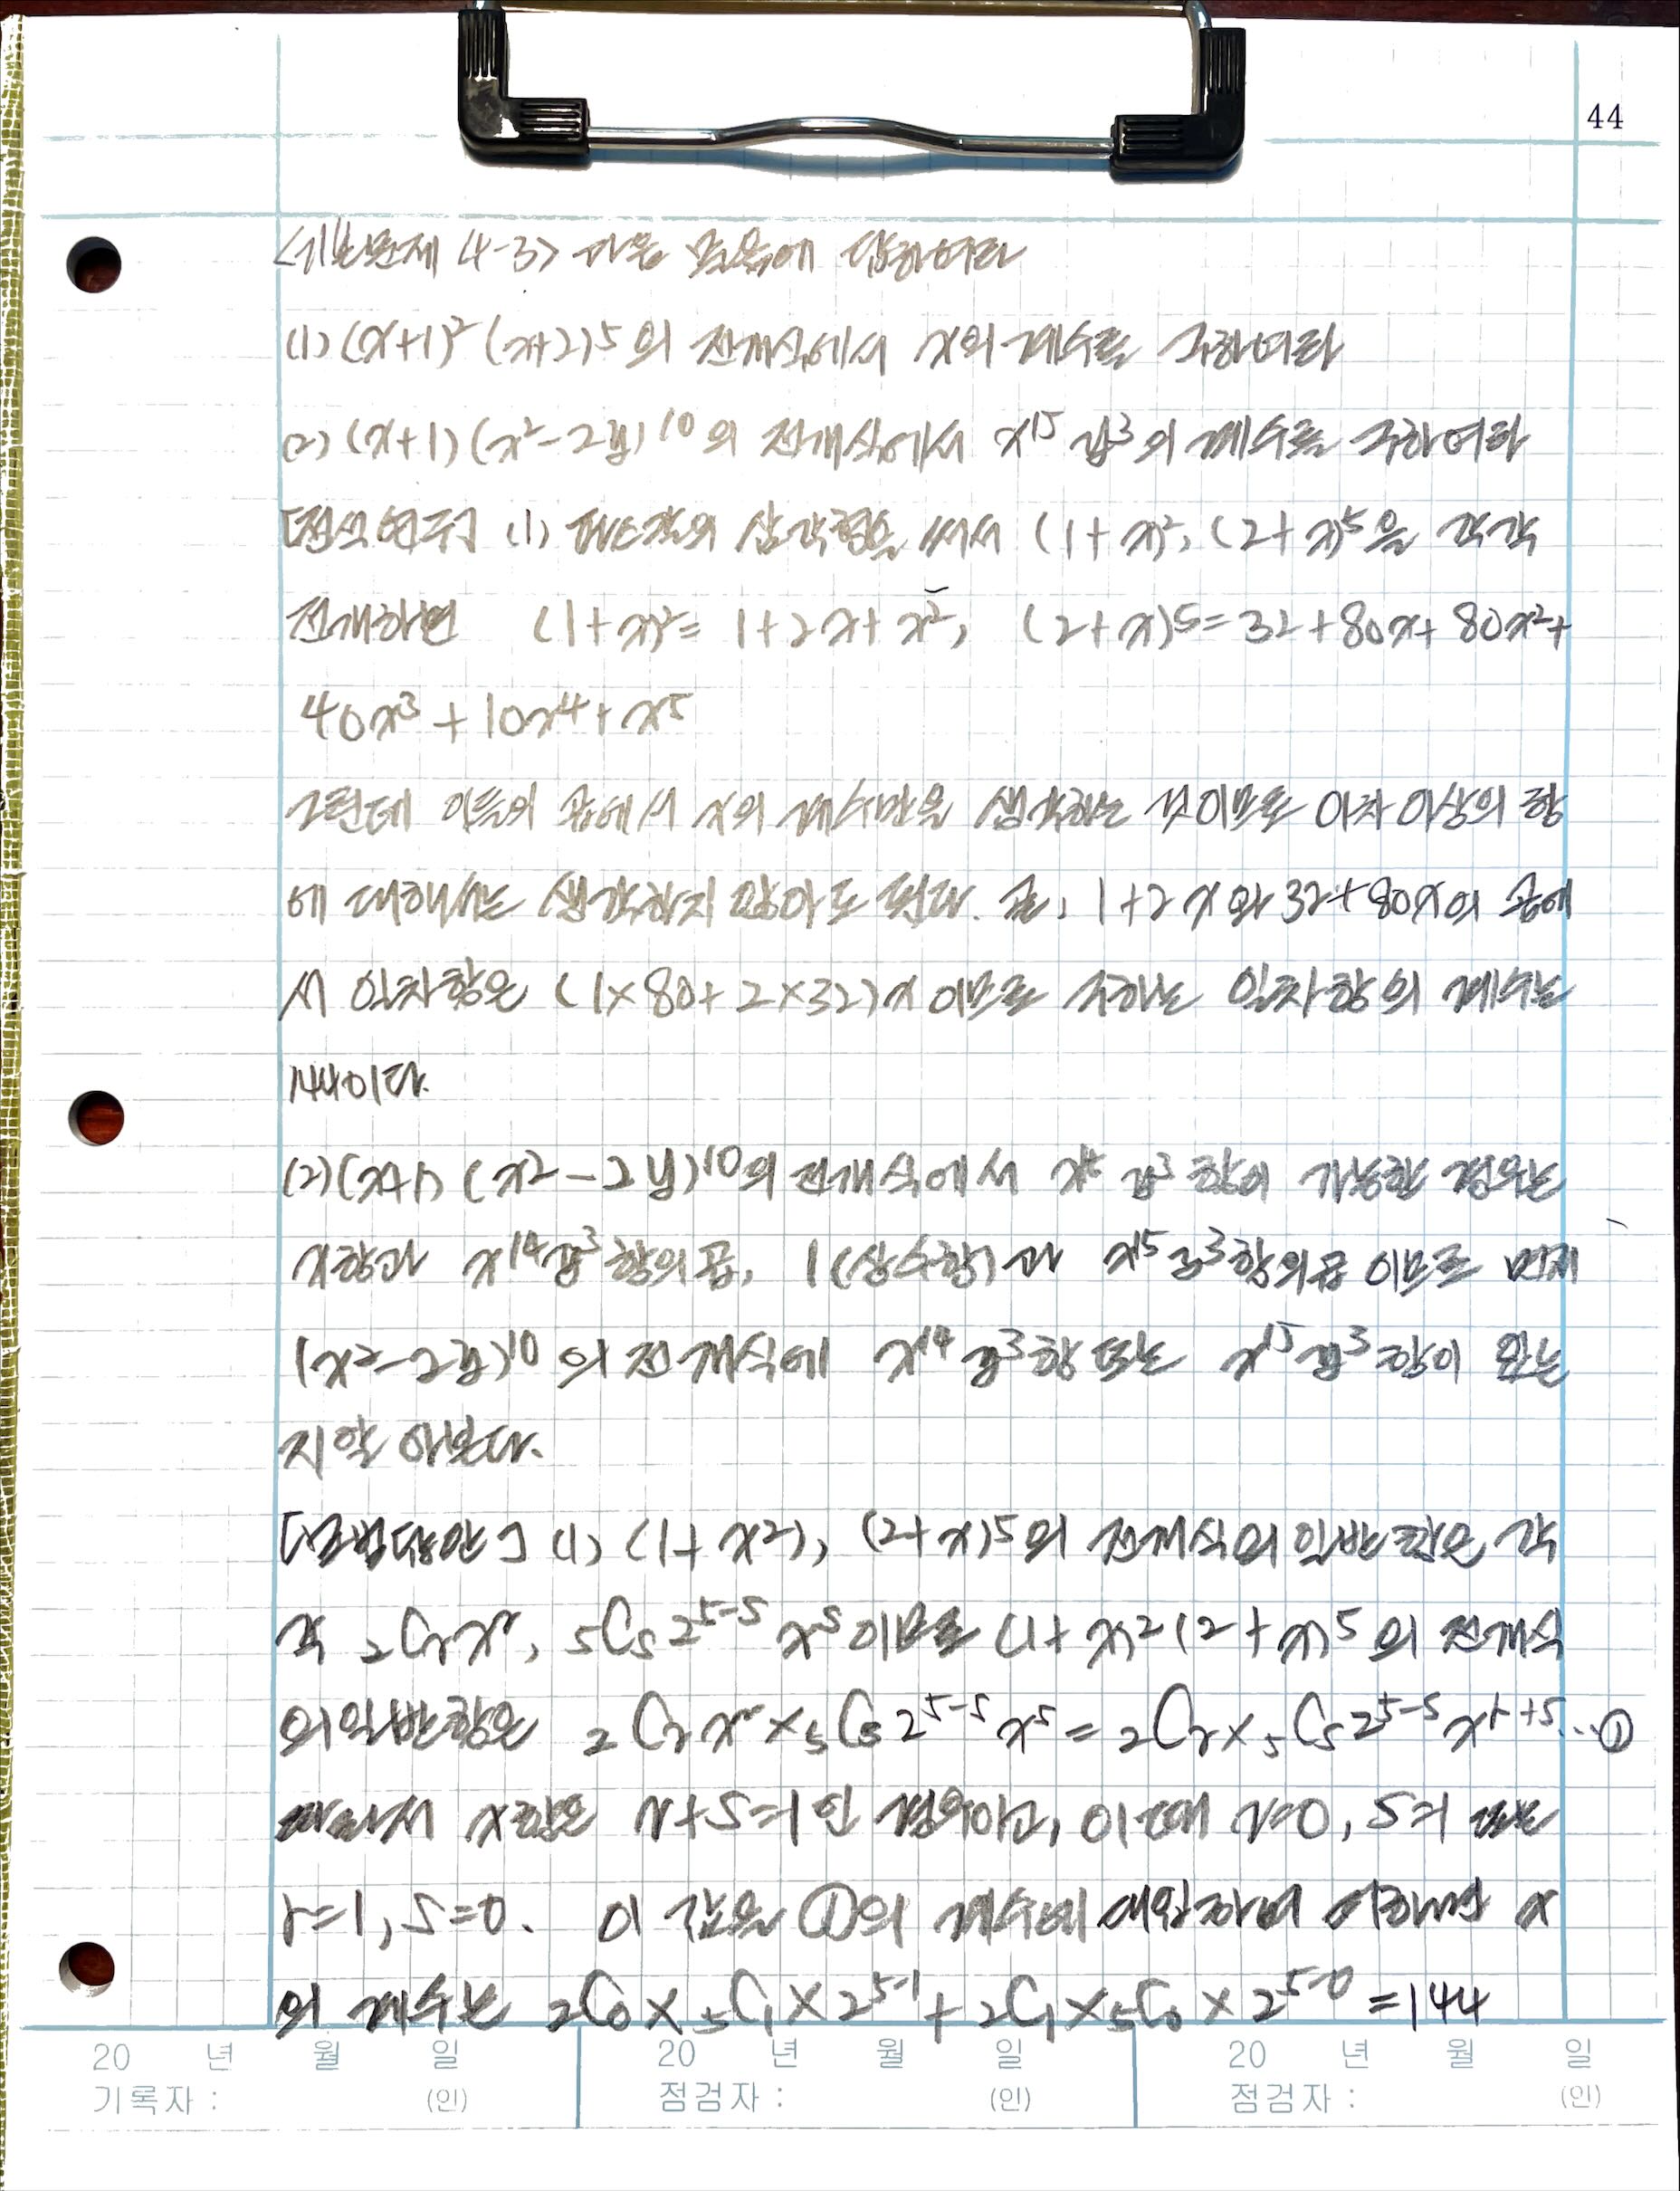 44
<기본문제 4-3> 다음 물음에 답하여라
(1) (x+1)² (x+2)⁵의 전개식에서 x의 계수를 구하여라
(2) (x+1)(x²-2y)¹⁰의 전개식에서 x¹⁵y³의 계수를 구하여라
[정석연구] (1) 파스칼의 삼각형을 써서 (1+x)², (2+x)⁵을 각각
전개하면 (1+x)²= 1+2x+x², (2+x)⁵=32+80x+80x²+
40x³+10x⁴+x⁵
그런데 이들의 곱에서 x의 계수만을 생각하는 것이므로 이차 이상의 항
에 대해서는 생각하지 않아도 된다. 곧, 1+2x와 32+80x의 곱에
서 일차항은 (1×80+2×32)x이므로 구하는 일차항의 계수는
144이다.
(2)(x+1)(x²-2y)¹⁰의 전개식에서 y³항이 가능한 경우는
x항과 x¹⁴y³항의 곱, 1(상수항)과 x¹⁵y³항의 곱 이므로 먼저
(x²-2y)¹⁰의 전개식에 x¹⁴y³항 또는 x¹⁵y³항이 있는
지 알아본다.
[모범답안] (1) (1+x²), (2+x)⁵의 전개식의 일반항은 각
각 ₂Cᵣxʳ, ₅Cₛ2⁵⁻ˢxˢ이므로 (1+x)²(2+x)⁵의 전개식
의 일반항은 ₂Cᵣxʳ×₅Cₛ2⁵⁻ˢxˢ=₂Cᵣ×₅Cₛ2⁵⁻ˢxʳ⁺ˢ…①
따라서 x항은 r+s=1인 경우이고, 이때 r=0, s=1 또는
r=1, s=0. 이 값을 ①의 계수에 대입하여 더하면 x
의 계수는 ₂C₀×₅C₁×2⁵⁻¹+₂C₁×₅C₀×2⁵⁻⁰=144
20 년 월 일 20 년 월 일 20 년 월 일
기록자 : (인) 점검자 : (인) 점검자 : (인)